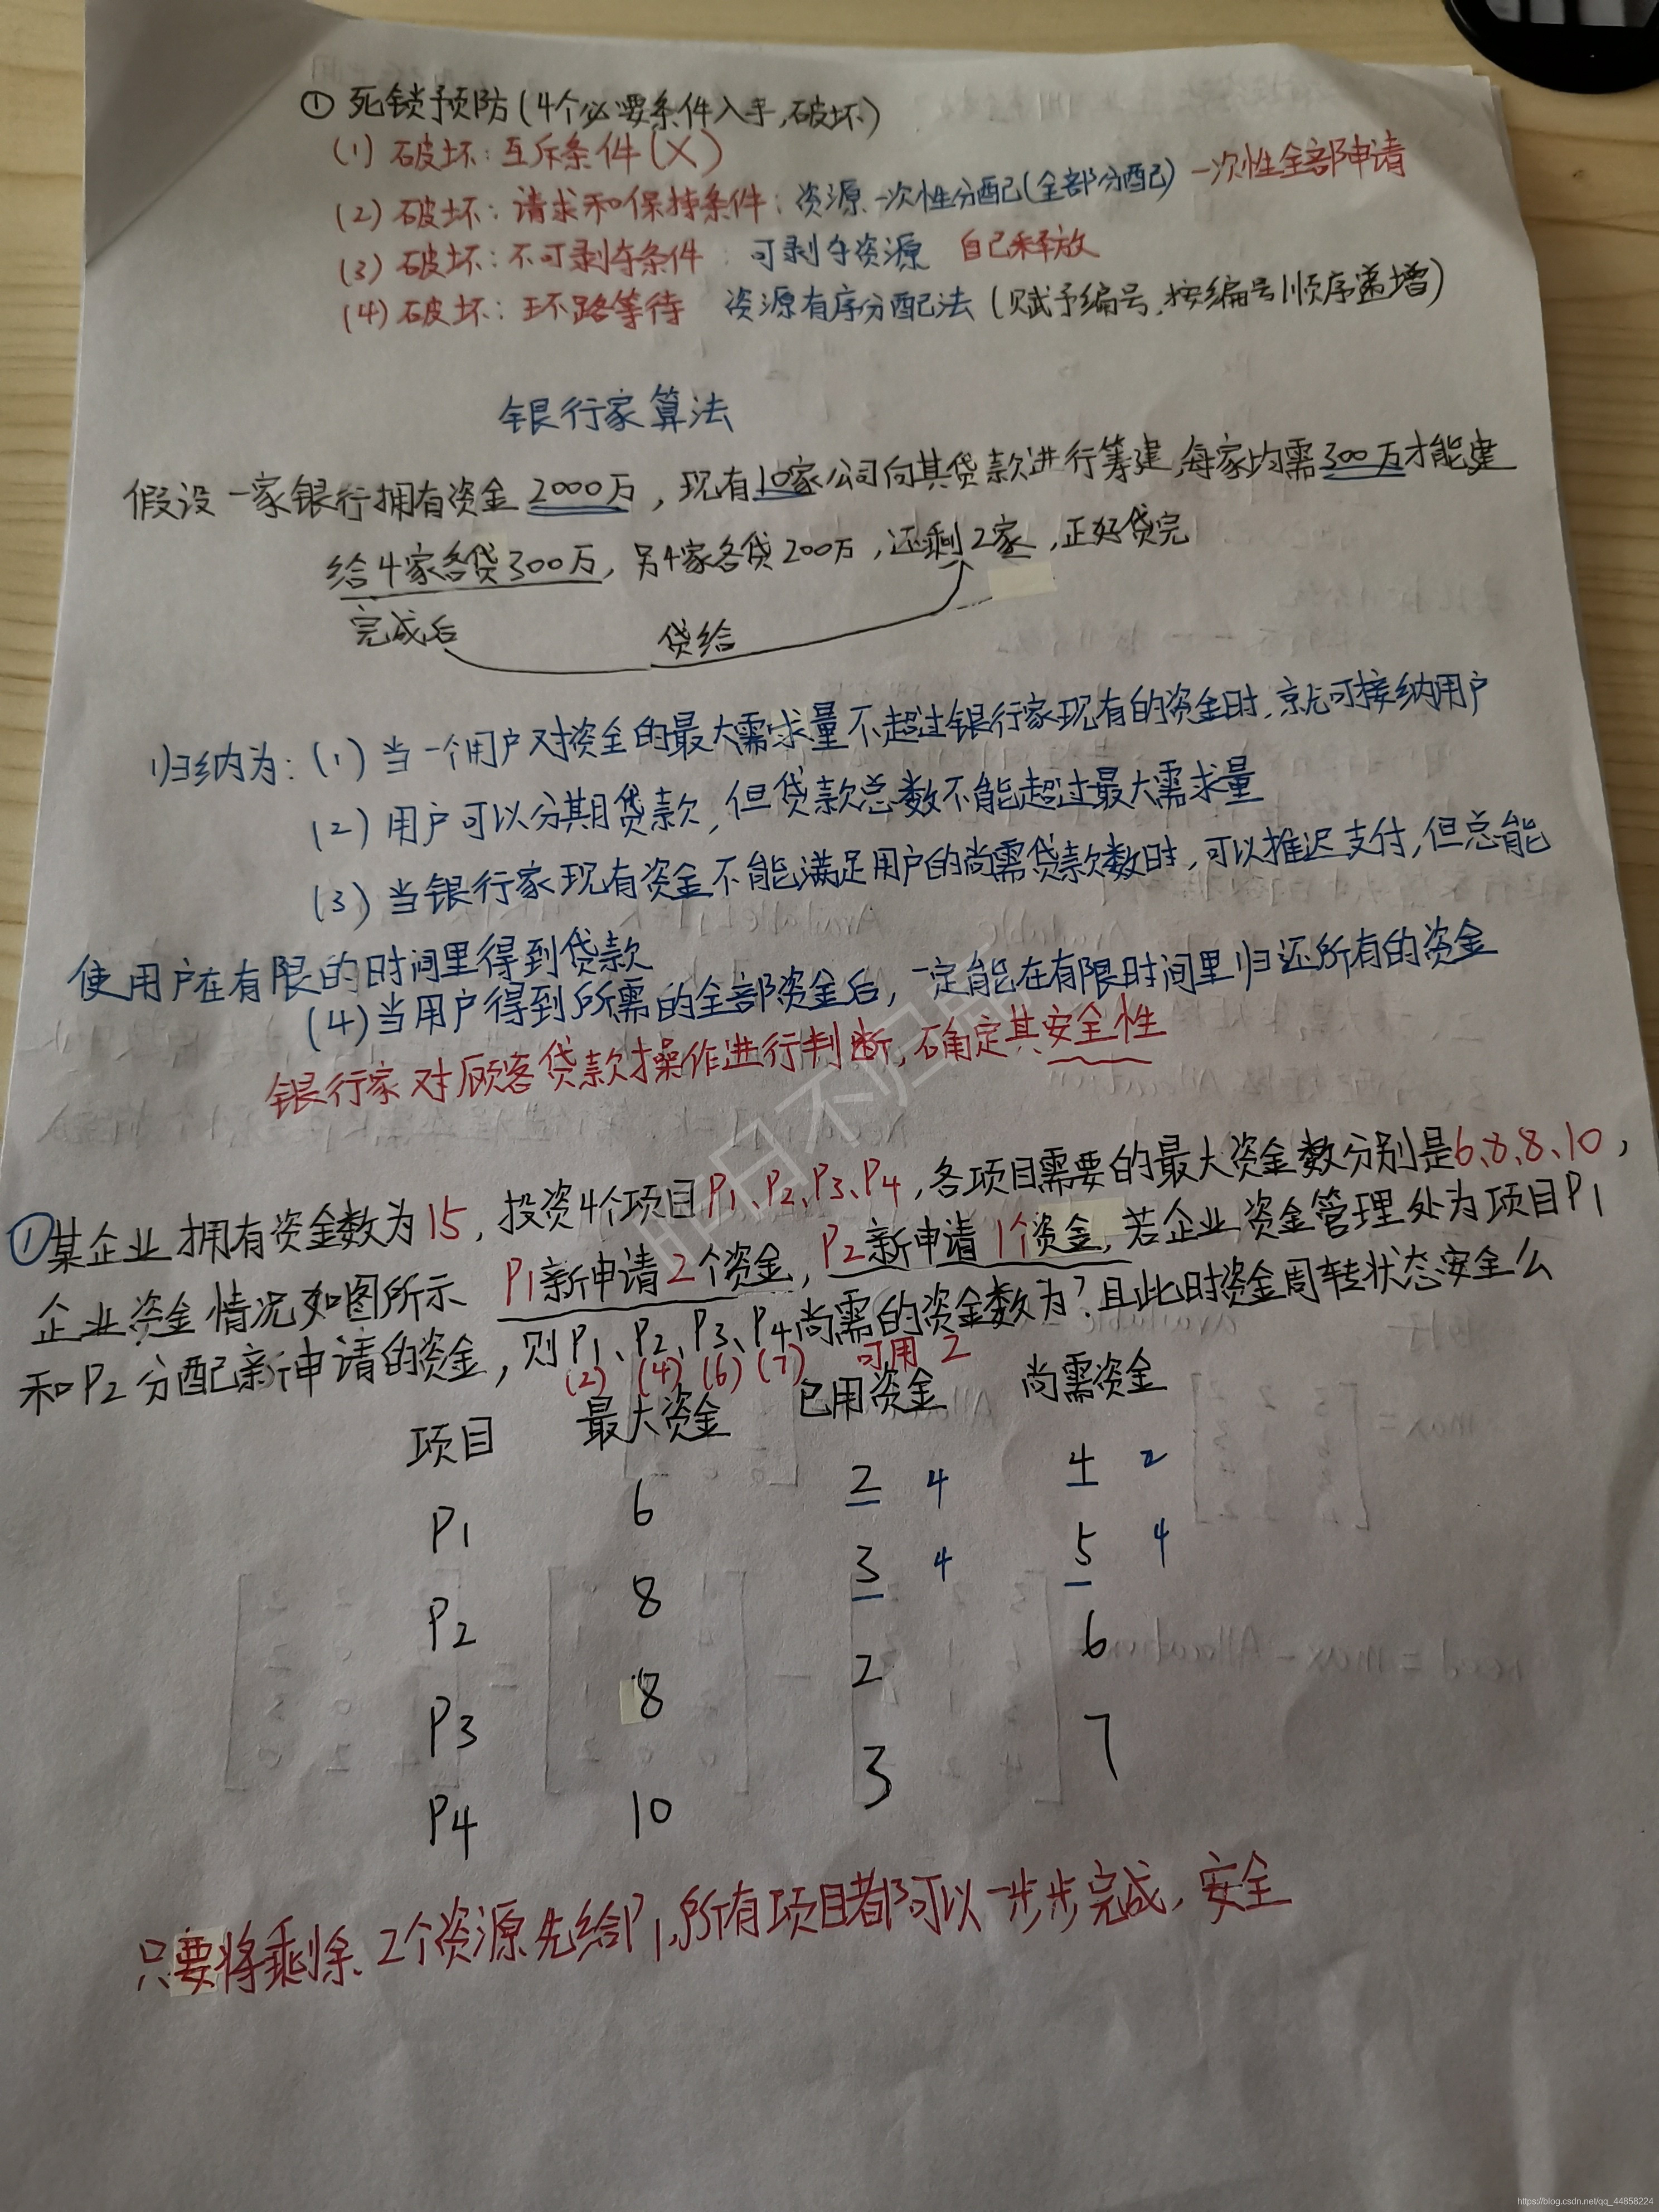 ① 死锁预防(4个必要条件入手,破坏)
(1) 破坏:互斥条件(X)
(2) 破坏:请求和保持条件:资源一次性分配(全部分配) 一次性全部申请
(3) 破坏:不可剥夺条件:可剥夺资源 自己释放
(4) 破坏:环路等待 资源有序分配法(赋予编号,按编号顺序递增)
银行家算法
假设一家银行拥有资金2000万,现有10家公司向其贷款进行筹建,每家均需300万才能建
给4家各贷300万,另4家各贷200万,还剩2家,正好贷完
完成后 贷给
归纳为:(1)当一个用户对资金的最大需求量不超过银行家现有的资金时,就可接纳用户
(2)用户可以分期贷款,但贷款总数不能超过最大需求量
(3)当银行家现有资金不能满足用户的尚需贷款数时,可以推迟支付,但总能
使用户在有限的时间里得到贷款
(4)当用户得到所需的全部资金后,一定能在有限时间里归还所有的资金
银行家对顾客贷款操作进行判断,确定其安全性
①某企业拥有资金数为15,投资4个项目P1、P2、P3、P4,各项目需要的最大资金数分别是6、8、8、10,
企业资金情况如图所示 P1新申请2个资金,P2新申请1个资金,若企业资金管理处为项目P1
和P2分配新申请的资金,则P1、P2、P3、P4尚需的资金数为?且此时资金周转状态安全么
(2) (4) (6) (7) 可用 2
项目 最大资金 已用资金 尚需资金
P1 6 2 4 4 2
P2 8 3 4 5 4
P3 8 2 6
P4 10 3 7
只要将剩余2个资源先给P1,所有项目都可以一步步完成,安全
https://blog.csdn.net/qq_44858224